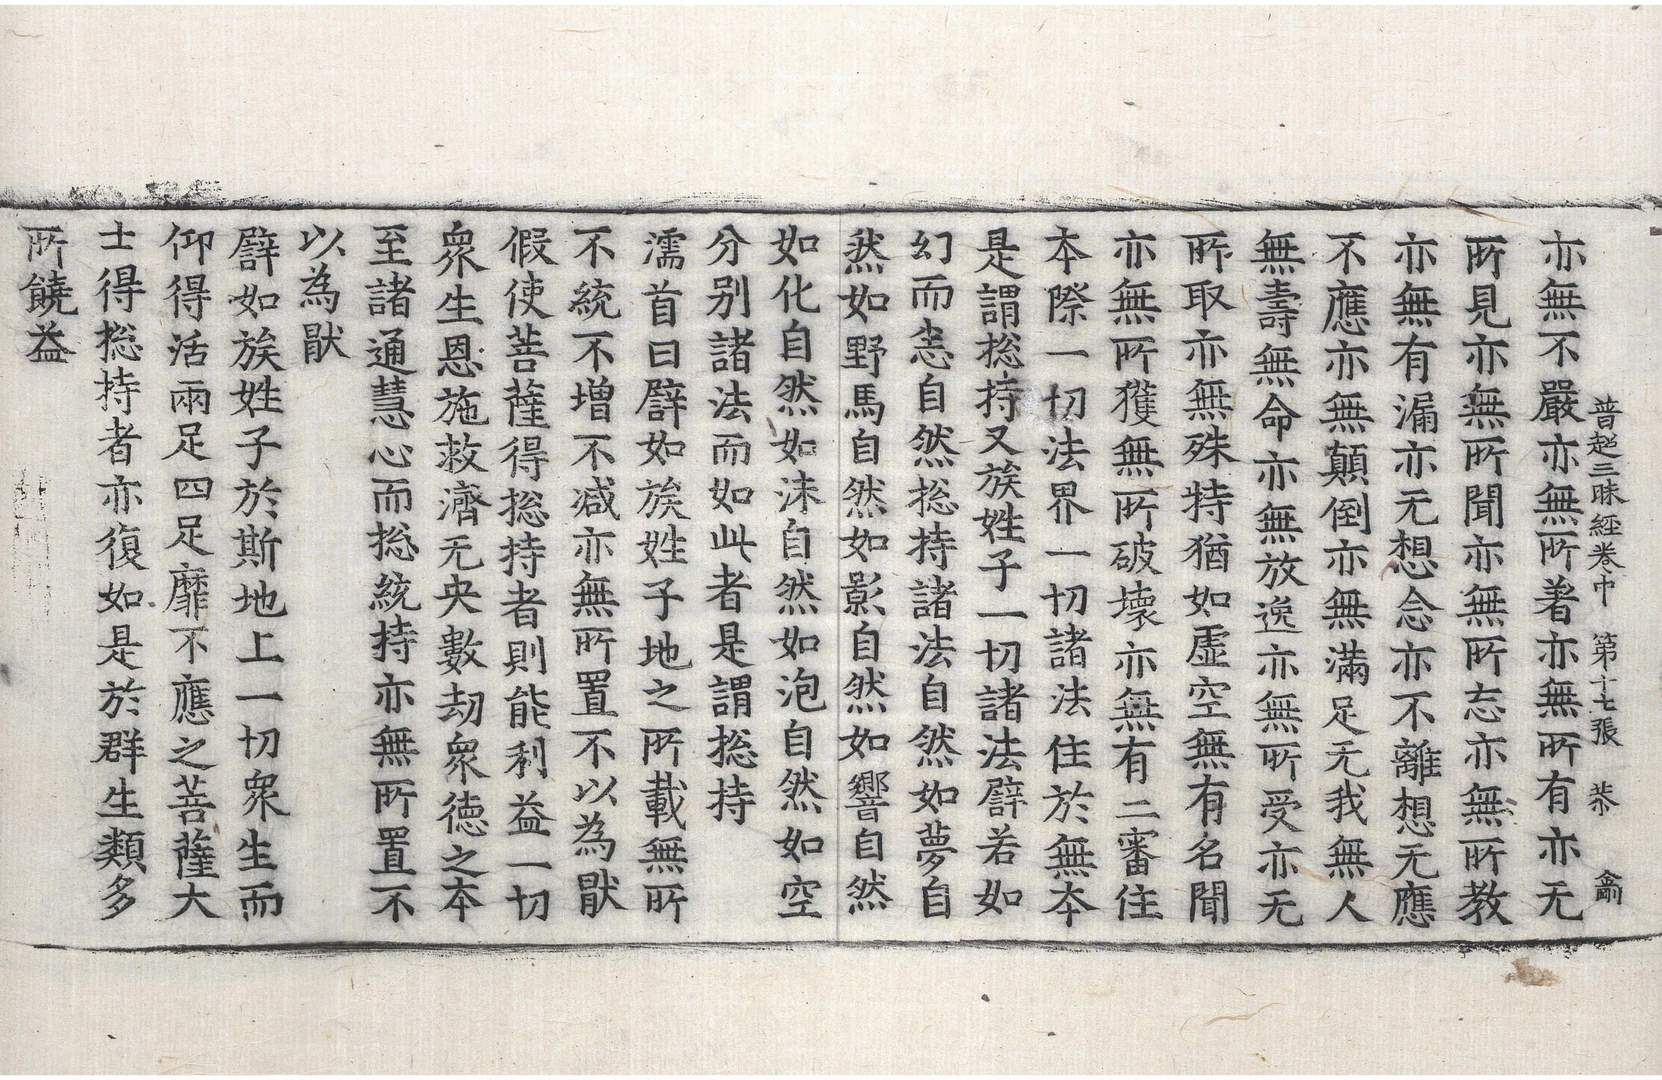 普超三昧經卷中　第十七張　恭
亦無不嚴亦無所著亦無所有亦无
所見亦無所聞亦無所忘亦無所教
亦無有漏亦无想念亦不離想无應
不應亦無顛倒亦無滿足无我無人
無壽無命亦無放逸亦無所受亦无
所取亦無殊特猶如虛空無有名聞
亦無所獲無所破壞亦無有二審住
本際一切法界一切諸法住於無本
是謂捴持又族姓子一切諸法譬若如
幻而恚自然捴持諸法自然如夢自
然如野馬自然如影自然如響自然
如化自然如沫自然如泡自然如空
分别諸法而如此者是謂捴持
濡首曰譬如族姓子地之所載無所
不統不增不減亦無所置不以為猒
假使菩薩得捴持者則能利益一切
衆生恩施救濟无央數劫衆德之本
至諸通慧心而捴統持亦無所置不
以為猒
譬如族姓子於斯地上一切衆生而
仰得活兩足四足靡不應之菩薩大
士得捴持者亦復如是於群生類多
所饒益